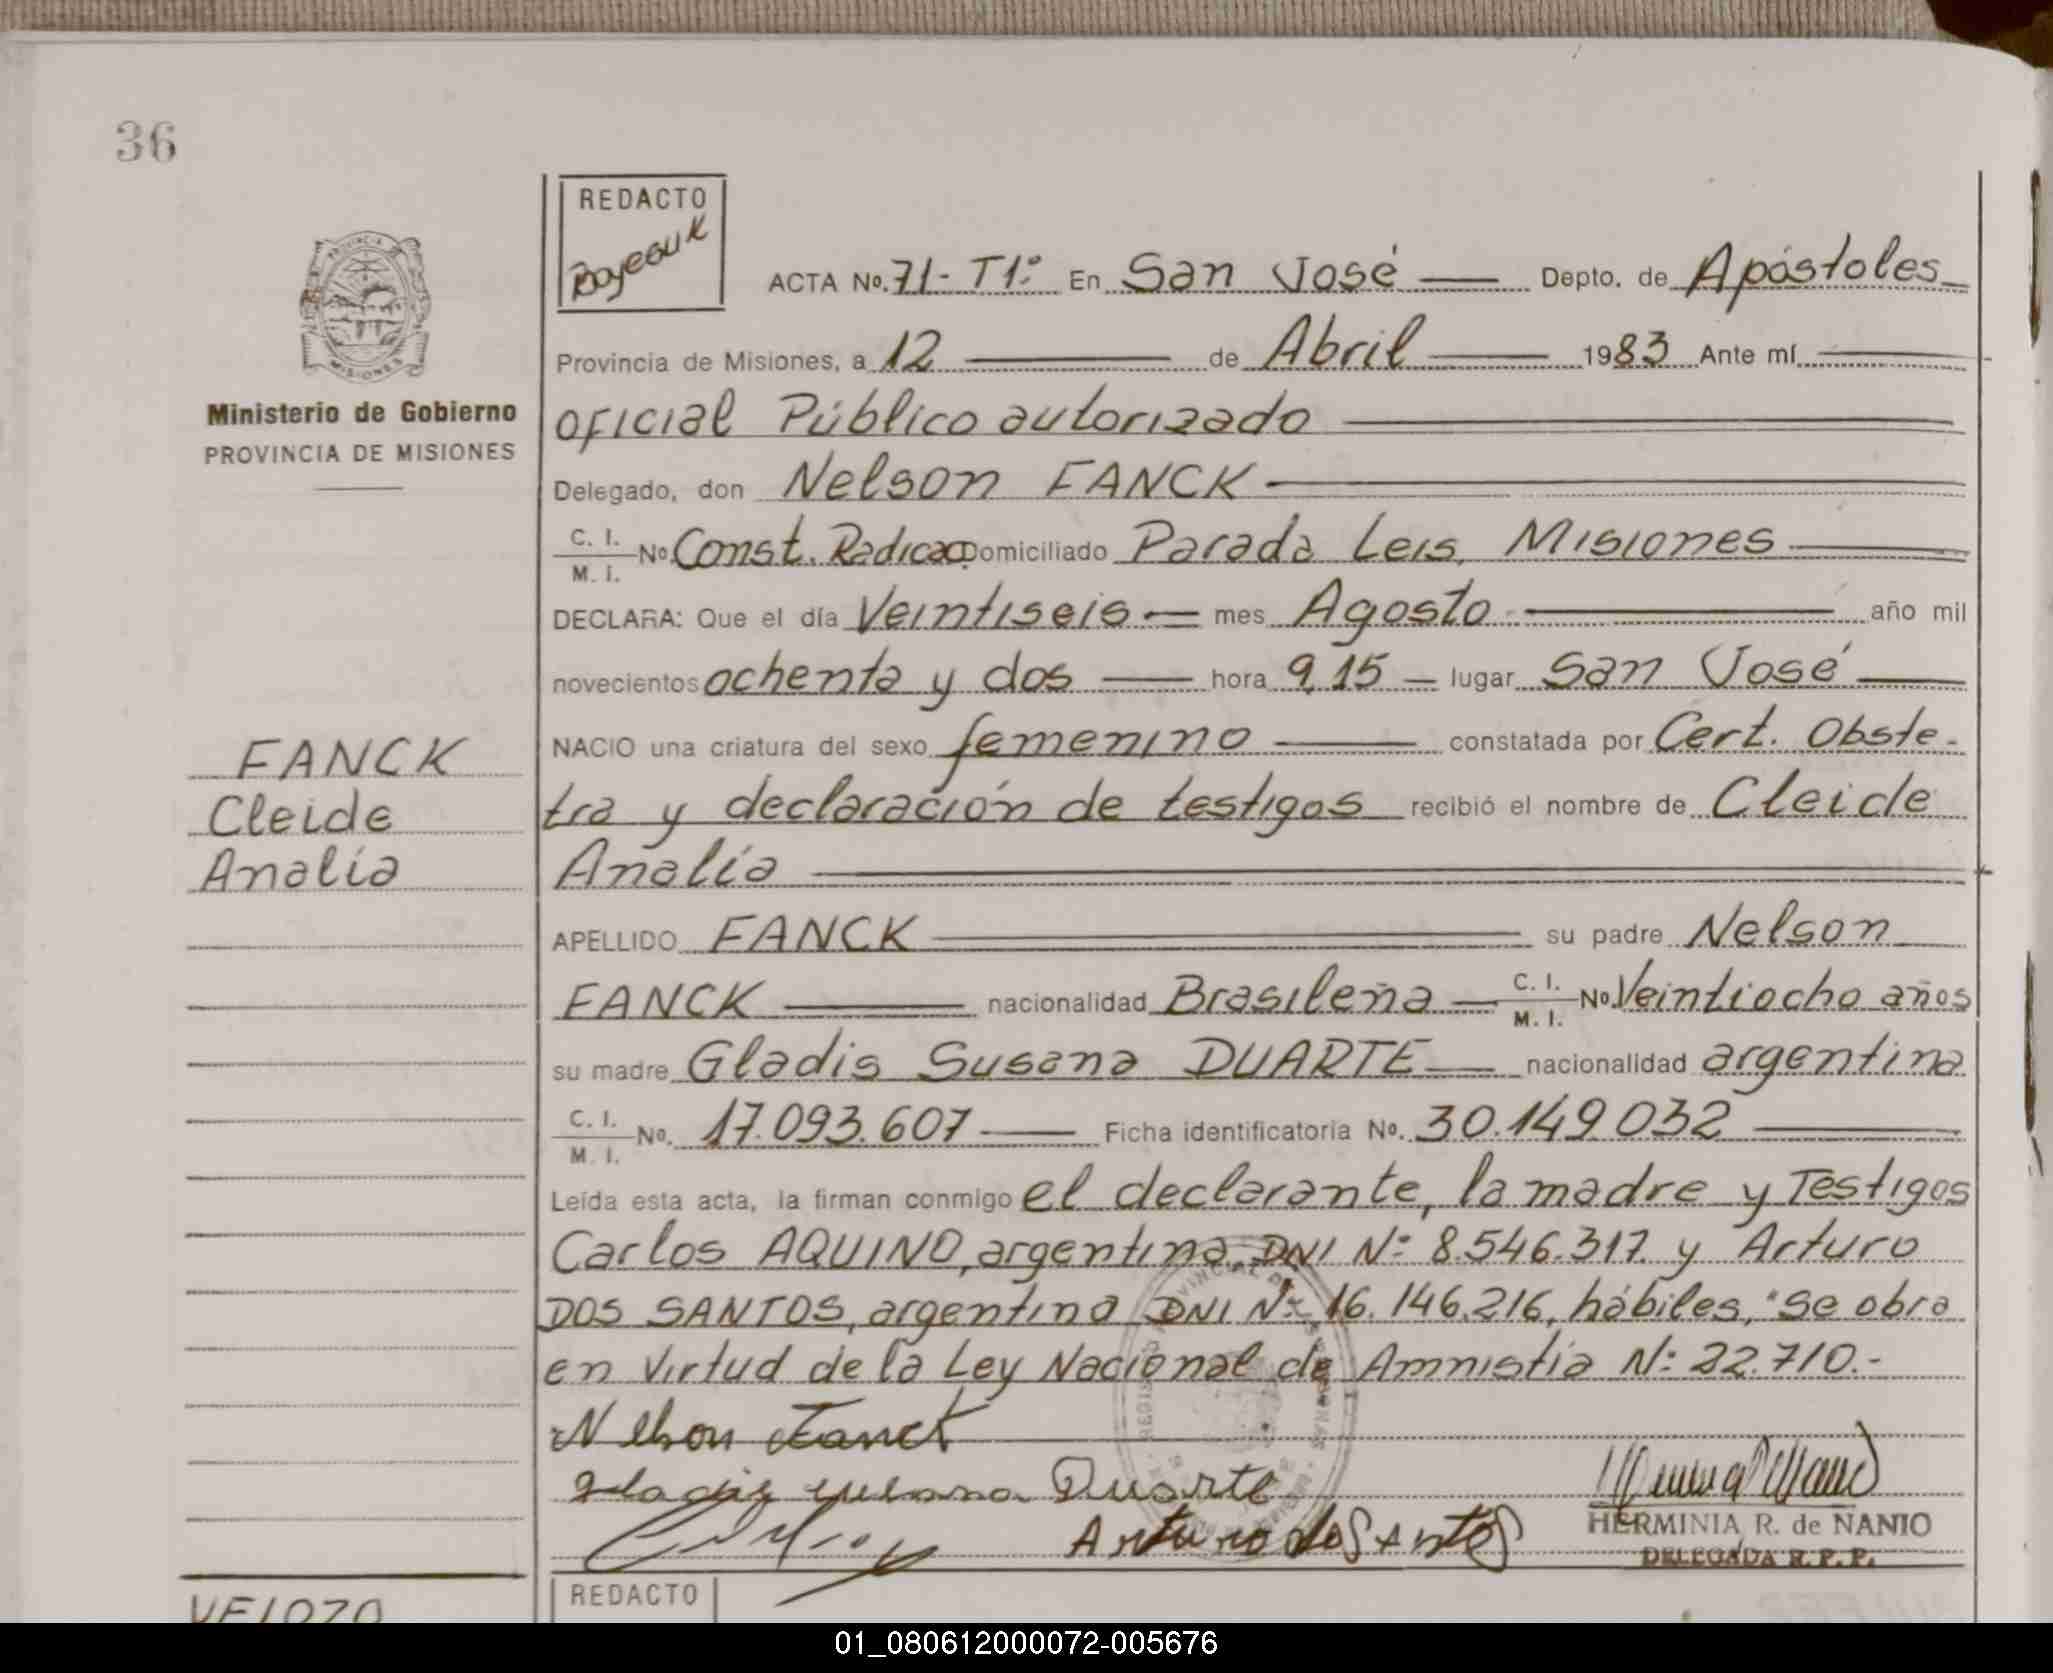 36
REDACTO
ACTA No. 71 - T1º En San José Depto. de Apóstoles
Provincia de Misiones, a 12 de Abril 1983 Ante mí
Ministerio de Gobierno
PROVINCIA DE MISIONES
MISIONES
Oficial Público autorizado
Delegado, don Nelson FANCK
C. I. / M. I. No. Const. Radicac. Domiciliado Parada Leis, Misiones
DECLARA: Que el día Veintiseis mes Agosto año mil
novecientos ochenta y dos hora 9,15 lugar San José
NACIO una criatura del sexo femenino constatada por Cert. Obste-
tra y declaración de testigos recibió el nombre de Cleide
Analía
FANCK
Cleide
Analía
APELLIDO FANCK su padre Nelson
FANCK nacionalidad Brasileña C. I. / M. I. No. Veintiocho años
su madre Gladis Susana DUARTE nacionalidad argentina
C. I. / M. I. No. 17.093.607 Ficha identificatoria No. 30.149.032
Leída esta acta, la firman conmigo el declarante, la madre y Testigos
Carlos AQUINO, argentino, DNI Nº 8.546.317 y Arturo
DOS SANTOS, argentino DNI Nº 16.146.216, hábiles, "Se obra
en Virtud de la Ley Nacional de Amnistía Nº 22.710.-
Nelson Fanck
Gladis Susana Duarte
Arturo do Santos
HERMINIA R. de NANIO
DELEGADA R. P. P.
REDACTO
VELOZO
01_080612000072-005676